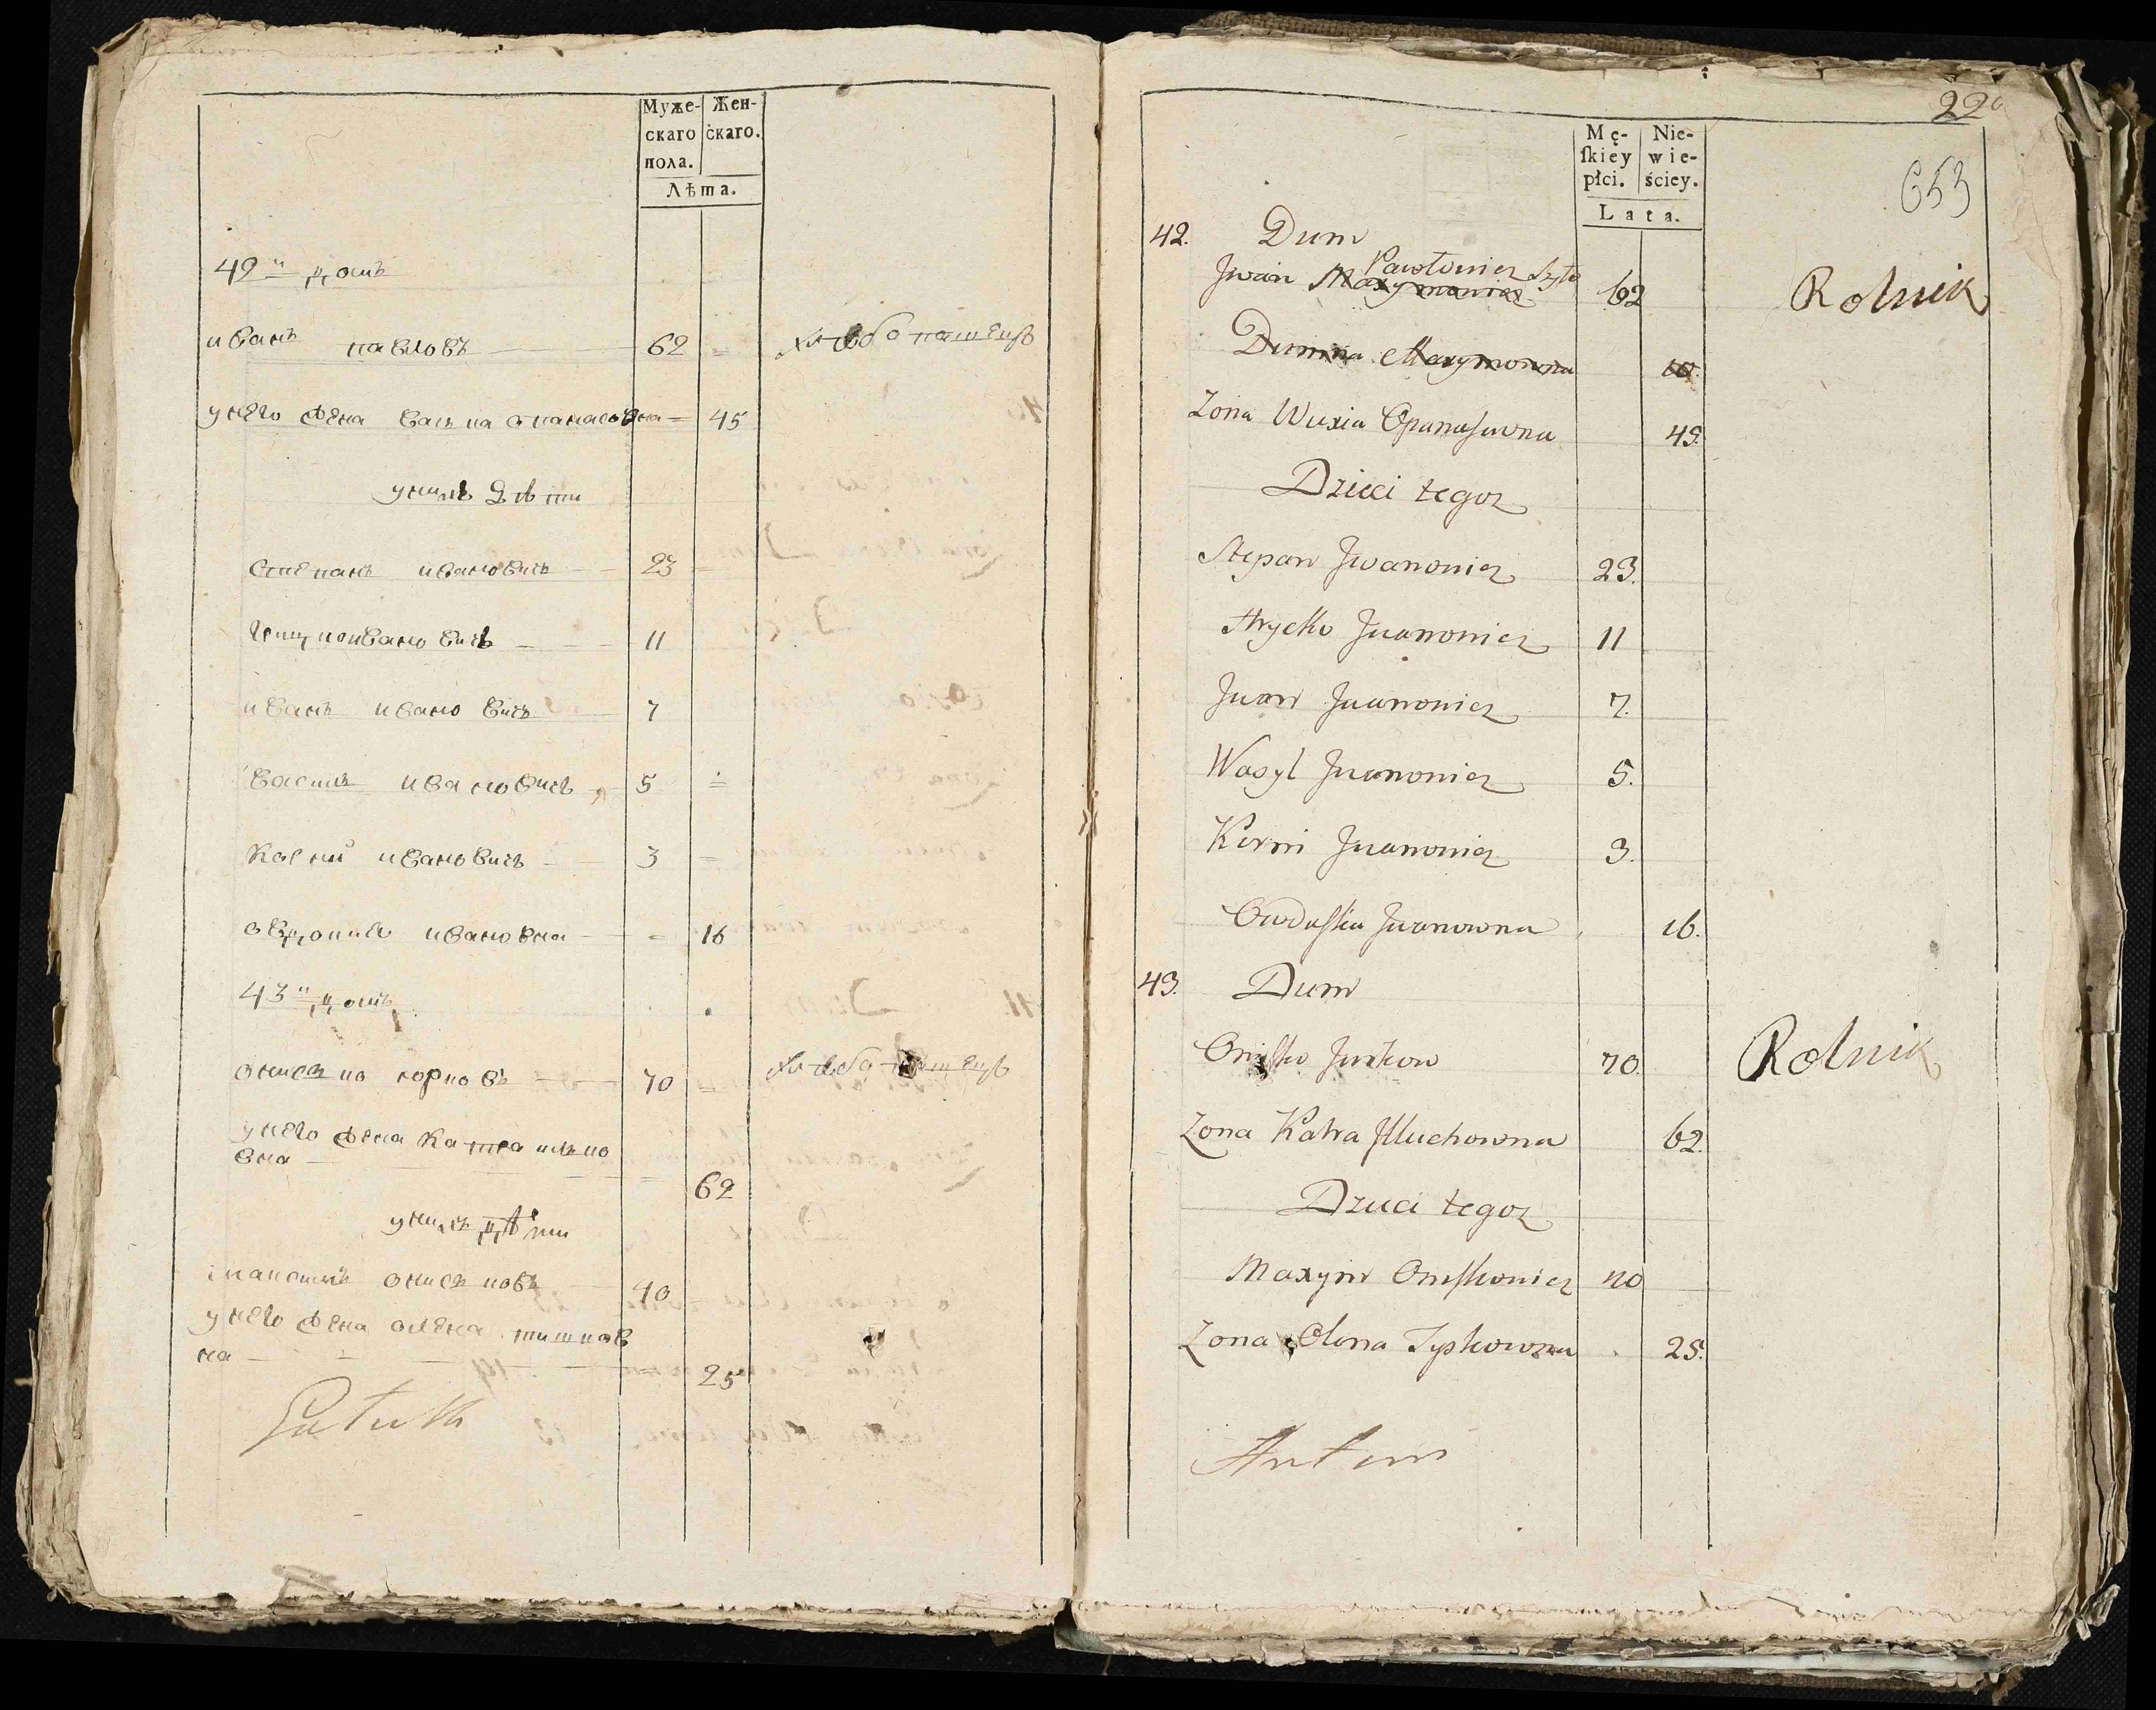 Муже-
скаго
пола.
Жен-
скаго.
Лѣта.
42й домъ
иванъ павловъ 62 хлѣбопашецъ
унего жена васька опанасовна 45
унихъ дѣти
степанъ ивановичъ 23
грицко ивановичъ 11
иванъ ивановичъ 7
василь ивановичъ 5
корнiй ивановичъ 3
овдошка ивановна 16
43й домъ
онисько юрковъ 70 хлѣбопашецъ
унего жена катра илько
вна
62
унихъ дѣти
максимъониськовъ 40
унего жена олена тишков
на
25
220
653
Mę-
ſkiey
płci.
Nie-
wie-
ściey.
Lata.
42. Dum
Pawłowicz Szyło
Jwan Maxymowicz 62 Rolnik
Dumna Maxymowna 10.
Zona Wusia Opanaſowna 45.
Dzieci tegoz
Stepan Jwanowicz 23.
Hrycko Jwanowicz 11
Jwan Jwanowicz 7.
Wasyl Jwanowicz 5.
Kirni Jwanowicz 3.
Owduſzka Jwanowna 16.
43. Dum
Oniſko Jurkow 70. Rolnik
Zona Katra 62.
Dzieci tegoz
Maxym Oniſkowicz 40
Zona Olona Tyszkowna 25.